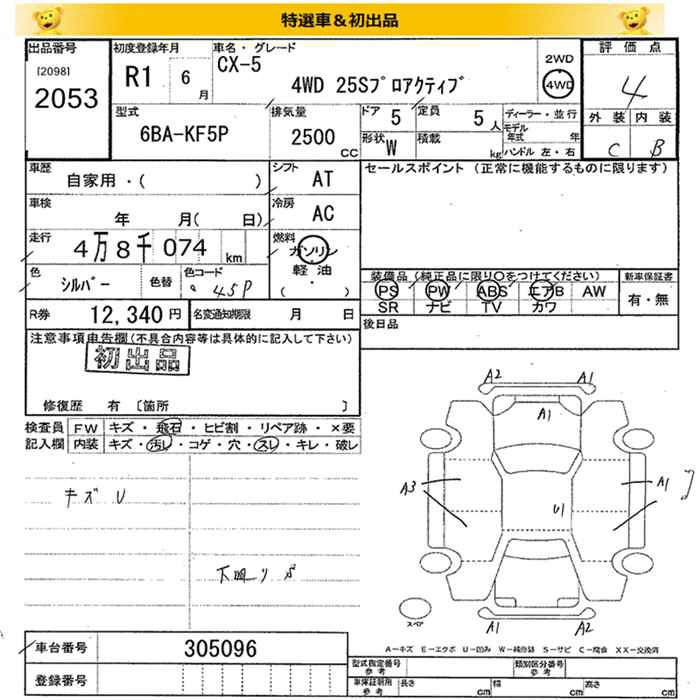 特選車＆初出品
出品番号 初度登録年月 車名・グレード 2WD 評価点
[2098] R1 6月 CX-5 4WD 25Sプロアクティブ 4WD 4
2053
型式 排気量 ドア 5 定員 5人 ディーラー・並行 外装 内装
6BA-KF5P 2500cc 形状 W 積載 kg モデル年式 年 C B
ハンドル 左・右
車歴 シフト セールスポイント (正常に機能するものに限ります)
自家用・( ) AT
車検 年 月( 日) 冷房 AC
走行 4万8千074km 燃料 ガソリン
軽油
( ・ )
色 シルバー 色替 色コード 45P
装備品 (純正品に限り○をつけてください) 新車保証書
PS PW ABS エアB AW 有・無
SR ナビ TV カワ
R券 12,340円 名変通知期限 月 日 後日品
注意事項申告欄(不具合内容等は具体的に記入して下さい)
初出品
修復歴 有 〔箇所 〕
検査員 FW キズ・飛石・ヒビ割・リペア跡・×要
記入欄 内装 キズ・汚レ・コゲ・穴・スレ・キレ・破レ
A2 A1
A1
キズ U
A3 A1
U1
スペア
A1 A2
A-キズ E-エクボ U-凹み W-補修跡 S-サビ C-腐食 XX-交換済
車台番号 305096
登録番号
型式指定番号 参考 類別区分番号 参考
車庫証明用 参考 長さ cm 幅 cm 高さ cm